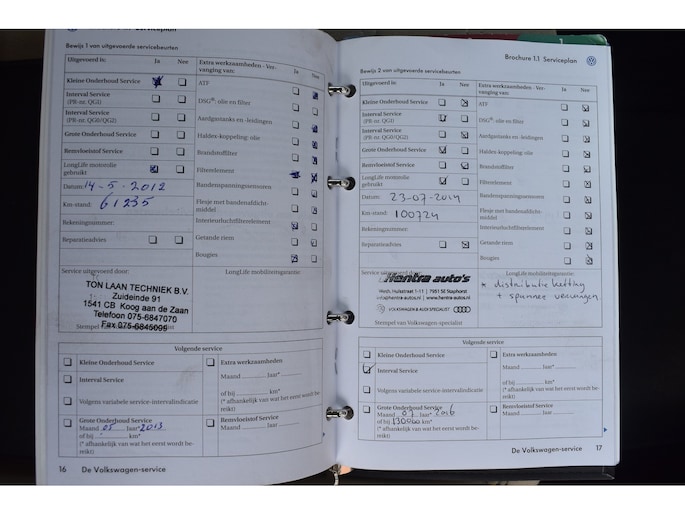 Bewijs 1 van uitgevoerde servicebeurten
Uitgevoerd is: Ja Nee
Kleine Onderhoud Service
Interval Service
(PR-nr. QG1)
Interval Service
(PR-nr. QG0/QG2)
Grote Onderhoud Service
Remvloeistof Service
LongLife motorolie
gebruikt
Datum: 14-5-2012
Km-stand: 61235
Rekeningnummer:
Reparatieadvies
Extra werkzaamheden - Ver-
vanging van: Ja Nee
ATF
DSG®: olie en filter
Aardgastanks en -leidingen
Haldex-koppeling: olie
Brandstoffilter
Filterelement
Bandenspanningssensoren
Flesje met bandenafdicht-
middel
Interieurluchtfilterelement
Getande riem
Bougies
Service uitgevoerd door:
TON LAAN TECHNIEK B.V.
Zuideinde 91
1541 CB Koog aan de Zaan
Telefoon 075-6847070
Fax 075-6845099
Stempel van
LongLife mobiliteitsgarantie:
Volgende service
Kleine Onderhoud Service
Interval Service
Volgens variabele service-intervalindicatie
Grote Onderhoud Service
Maand 05 Jaar* 2013
of bij km*
(* afhankelijk van wat het eerst wordt be-
reikt)
Extra werkzaamheden
Maand Jaar*
of bij km*
(* afhankelijk van wat het eerst wordt be-
reikt)
Remvloeistof Service
Maand Jaar*
(* afhankelijk van wat het eerst wordt be-
reikt)
16 De Volkswagen-service
Brochure 1.1 Serviceplan
Bewijs 2 van uitgevoerde servicebeurten
Uitgevoerd is: Ja Nee
Kleine Onderhoud Service
Interval Service
(PR-nr. QG1)
Interval Service
(PR-nr. QG0/QG2)
Grote Onderhoud Service
Remvloeistof Service
LongLife motorolie
gebruikt
Datum: 23-07-2014
Km-stand: 100724
Rekeningnummer:
Reparatieadvies
Extra werkzaamheden - Ver-
vanging van: Ja Nee
ATF
DSG®: olie en filter
Aardgastanks en -leidingen
Haldex-koppeling: olie
Brandstoffilter
Filterelement
Bandenspanningssensoren
Flesje met bandenafdicht-
middel
Interieurluchtfilterelement
Getande riem
Bougies
Service uitgevoerd door:
Hentra auto's
7951 SE Staphorst
info@hentra-autos.nl | www.hentra-autos.nl
VOLKSWAGEN & AUDI SPECIALIST
Stempel van Volkswagen-specialist
LongLife mobiliteitsgarantie:
* distributie ketting
+ spanner vervangen
Volgende service
Kleine Onderhoud Service
Interval Service
Volgens variabele service-intervalindicatie
Grote Onderhoud Service
Maand 07 Jaar* 2016
of bij 130000 km*
(* afhankelijk van wat het eerst wordt be-
reikt)
Extra werkzaamheden
Maand Jaar*
of bij km*
(* afhankelijk van wat het eerst wordt be-
reikt)
Remvloeistof Service
Maand Jaar*
(* afhankelijk van wat het eerst wordt be-
reikt)
De Volkswagen-service 17